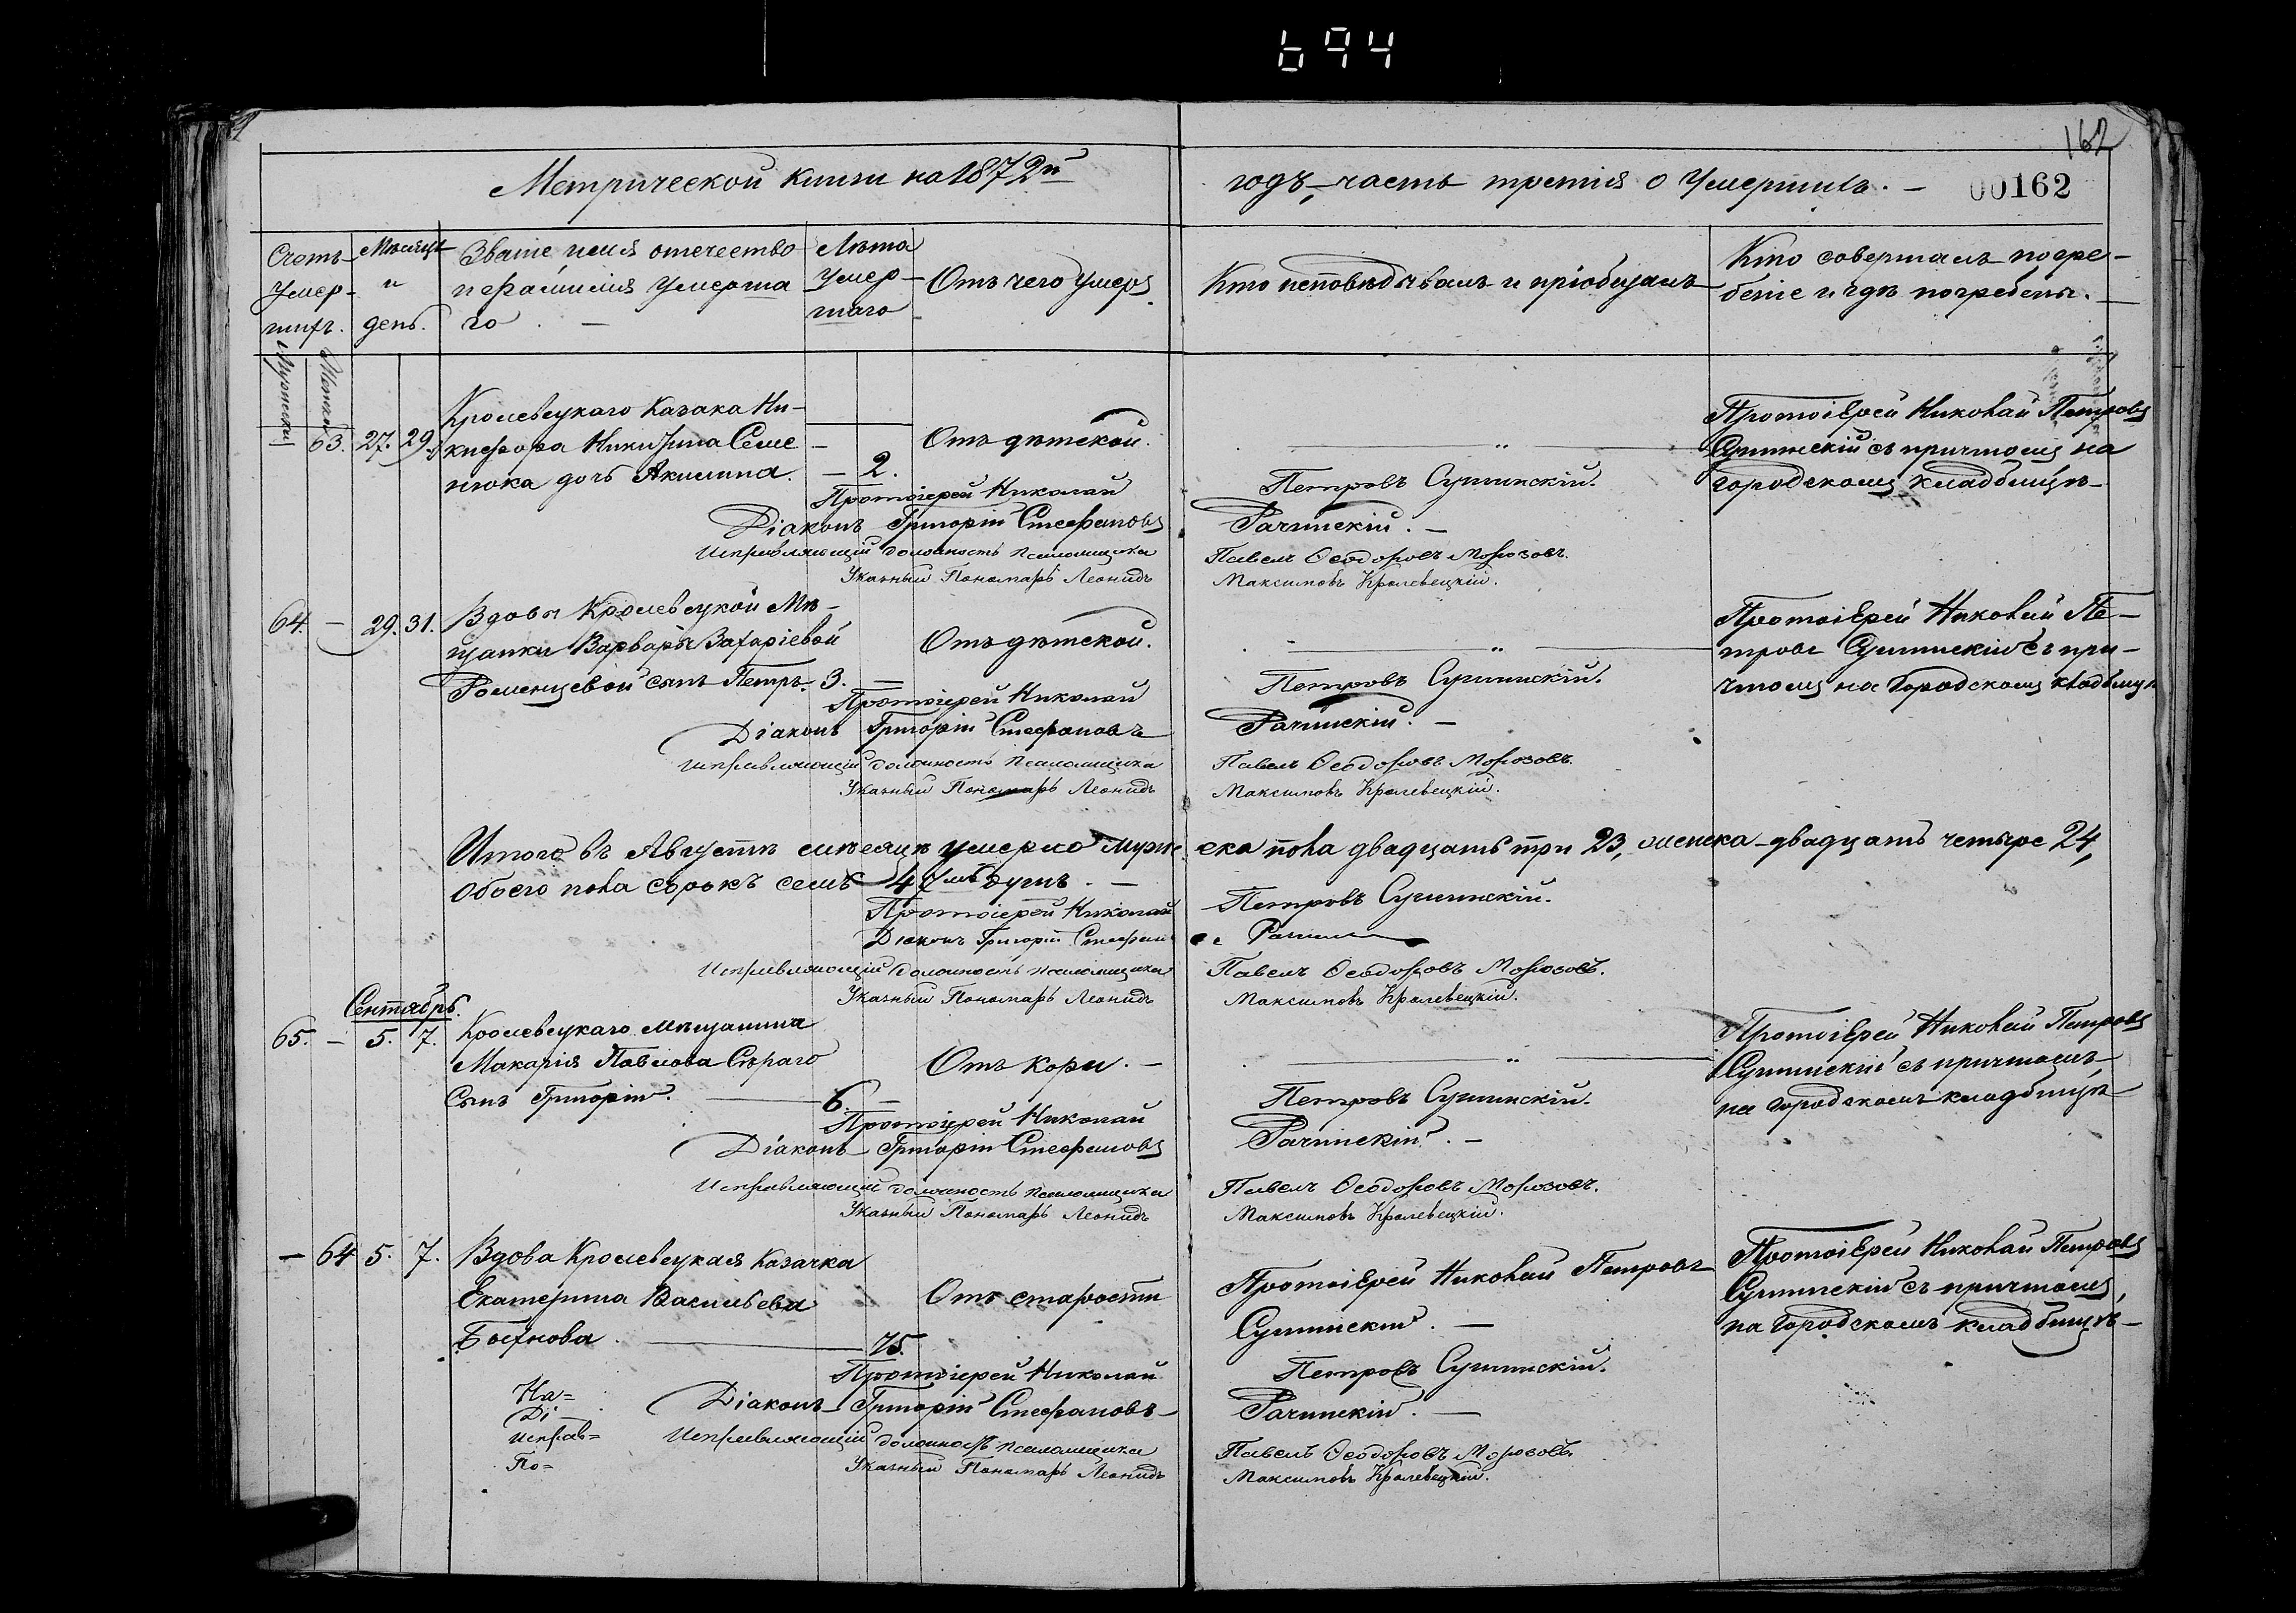 694
162
Метрической книги на 1872й годъ, часть третія о Умершихъ. 00162
Счетъ Умер-шихъ.
Мужеска
Женска
Мѣсяцъ и день.
Званіе, имя отечество и фамилія умерша-го
Лѣта умер-шаго
Отъ чего умеръ
Кто исповѣдывалъ и пріобщалъ
Кто совершалъ погре-беніе и гдѣ погребены.
63. 27. 29. Кролевецкаго Казака Ни-
кифора Никитина Семе
нюка дочь Акилина. — 2.
Отъ дѣтской.
Протоіерей Николай Петровъ
Сушинскій съ причтомъ на
городскомъ кладбищѣ
Протоіерей Николай Петровъ Сушинскій.
Діаконъ Григорій Стефановъ Рачинскій. —
Исправляющій должность псаломщика Павелъ Ѳеодоровъ Морозовъ.
Указный Пономарь Леонидъ Максимовъ Кролевецкій.
64. — 29. 31. Вдовы Кролевецкой Мѣ-
щанки Варвары Захаріевой
Роменцевой сынъ Петръ. 3. —
Отъ дѣтской.
Протоіерей Николай Пе-
тровъ Сушинскій съ при-
чтомъ на Городскомъ кладбищѣ
Протоіерей Николай Петровъ Сушинскій.
Діаконъ Григорій Стефановъ Рачинскій. —
Исправляющій должность псаломщика Павелъ Ѳеодоровъ Морозовъ.
Указный Пономарь Леонидъ Максимовъ Кролевецкій.
Итого въ Августѣ мѣсяцѣ умерло мужеска пола двадцать три 23, женска двадцать четыре 24,
Обоего пола сорокъ семь 47мь душъ. —
Протоіерей Николай Петровъ Сушинскій.
Діаконъ Григорій
Исправляющій должность псаломщика Павелъ Ѳеодоровъ Морозовъ.
Указный Пономарь Леонидъ Максимовъ Кролевецкій.
Сентябрь.
65. — 5. 7. Кролевецкаго мѣщанина
Макарія Павлова Сѣраго
Сынъ Григорій. 6. —
Отъ кори. —
Протоіерей Николай Петровъ
Сушинскій съ причтомъ
на городскомъ кладбищѣ
Протоіерей Николай Петровъ Сушинскій.
Діаконъ Григорій Стефановъ Рачинскій. —
Исправляющій должность псаломщика Павелъ Ѳеодоровъ Морозовъ.
Указный Пономарь Леонидъ Максимовъ Кролевецкій.
— 64 5. 7. Вдова Кролевецкая Казачка
Екатерина Васильева
75.
Отъ старости
Протоіерей Николай Петровъ
Сушинскій. —
Протоіерей Николай Петровъ
Сушинскій съ причтомъ,
на городскомъ кладбищѣ
Протоіерей Николай Петровъ Сушинскій.
Діаконъ Григорій Стефановъ Рачинскій. —
Исправляющій должность псаломщика Павелъ Ѳеодоровъ Морозовъ.
Указный Пономарь Леонидъ Максимовъ Кролевецкій.
На=
Ді—
Исправ=
По=